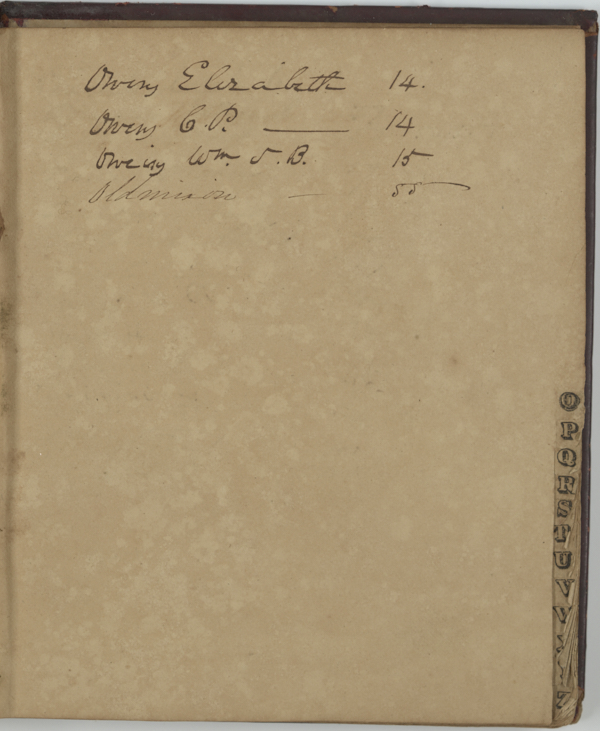 Owens Elizabeth 14.
Owens C. P. — 14
Owens Wm. J. B. 15
Oldmixon — 55
O
P
Q
R
S
T
U
V